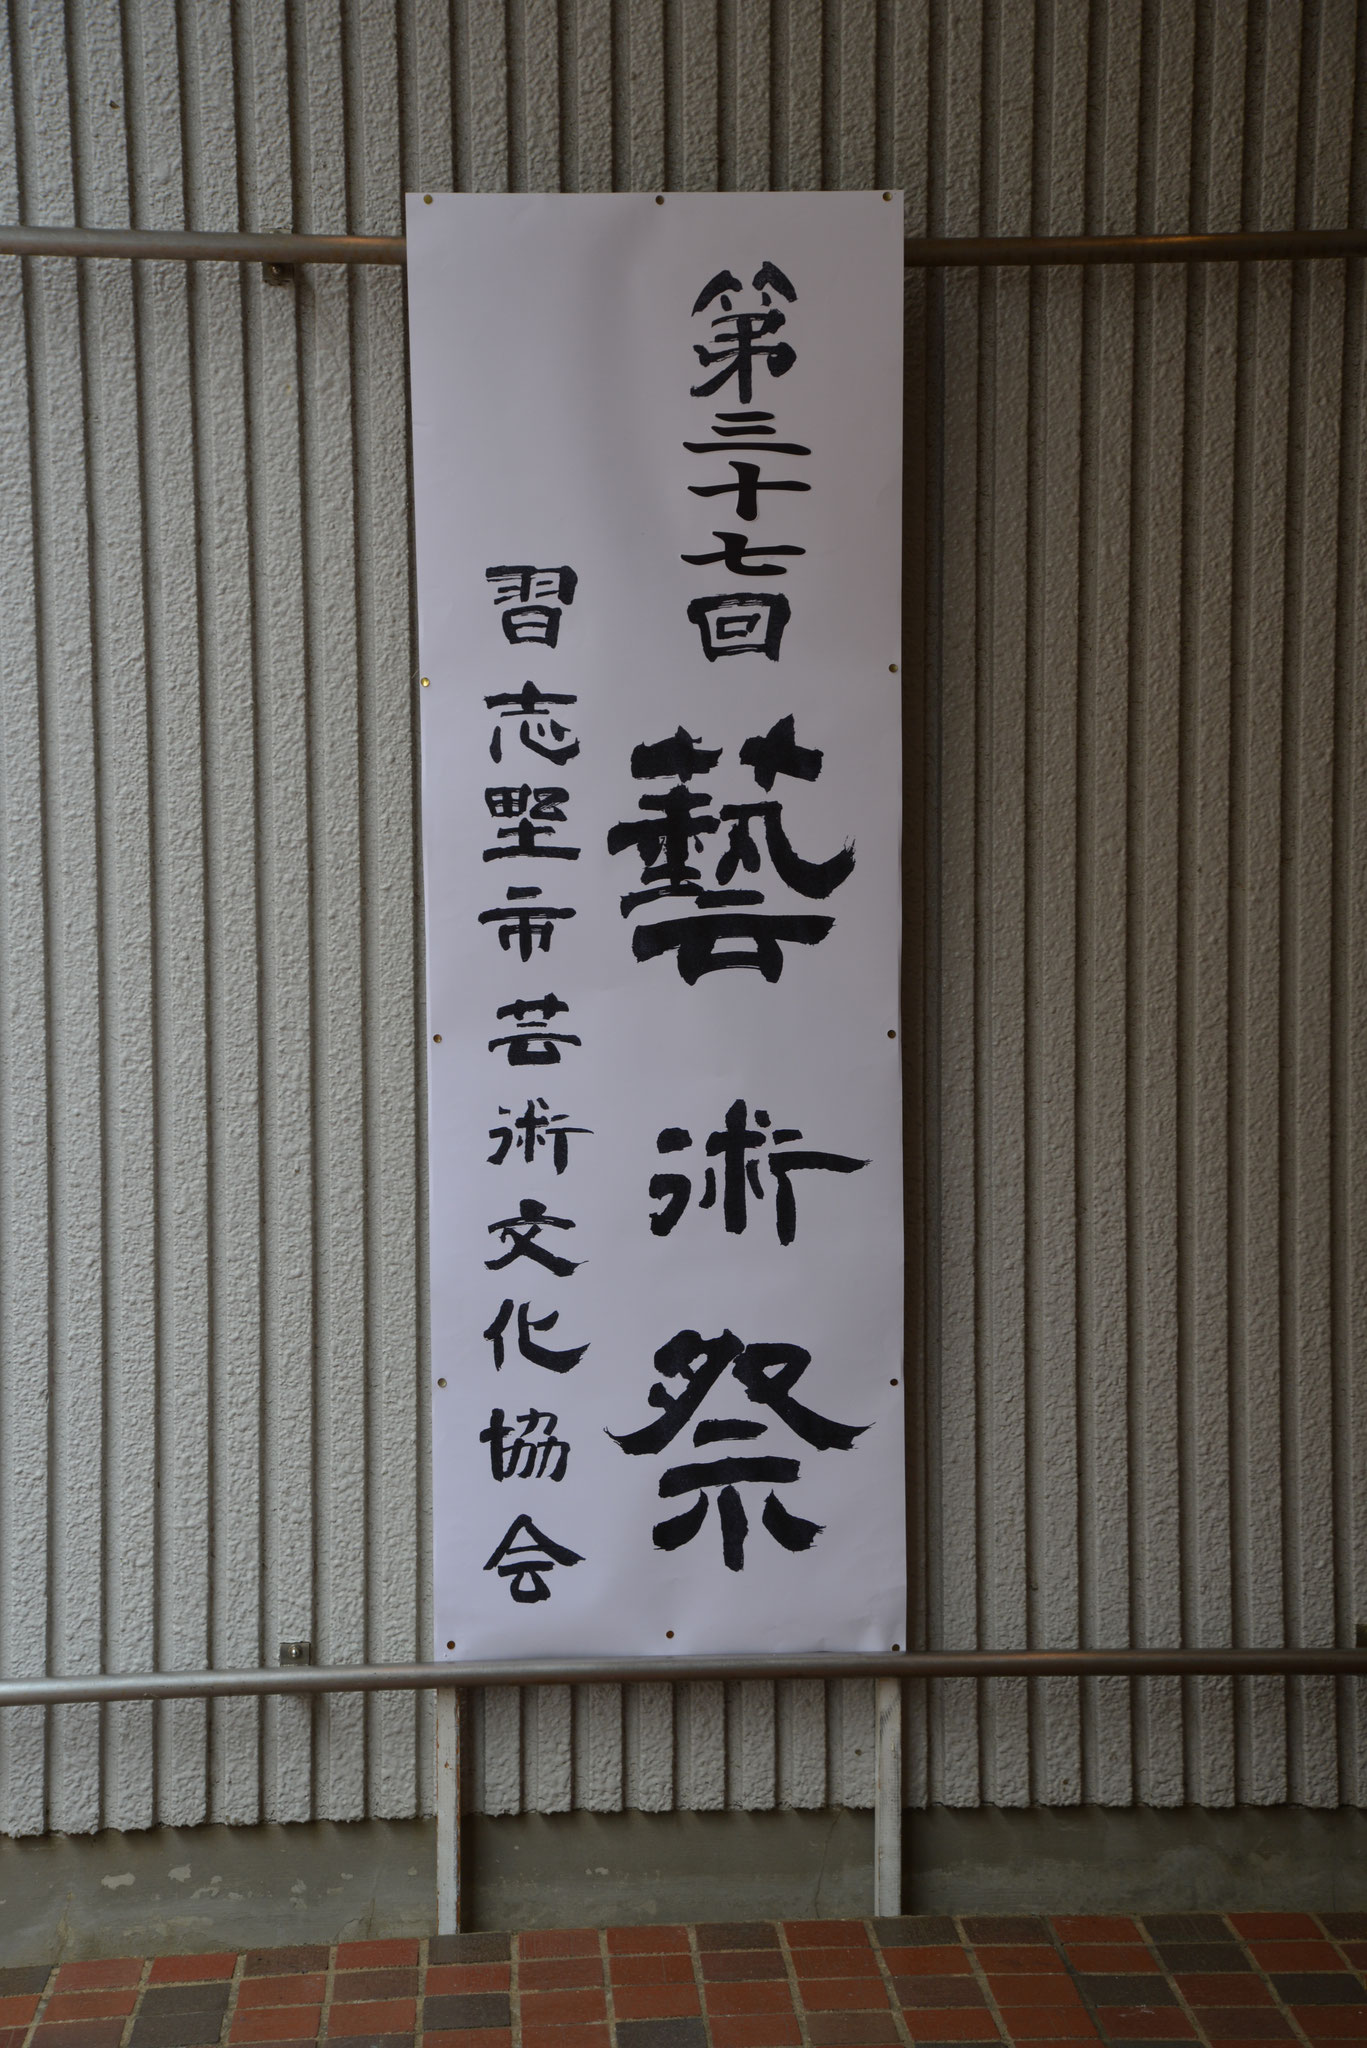 第三十七回 藝術祭
習志野市芸術文化協会